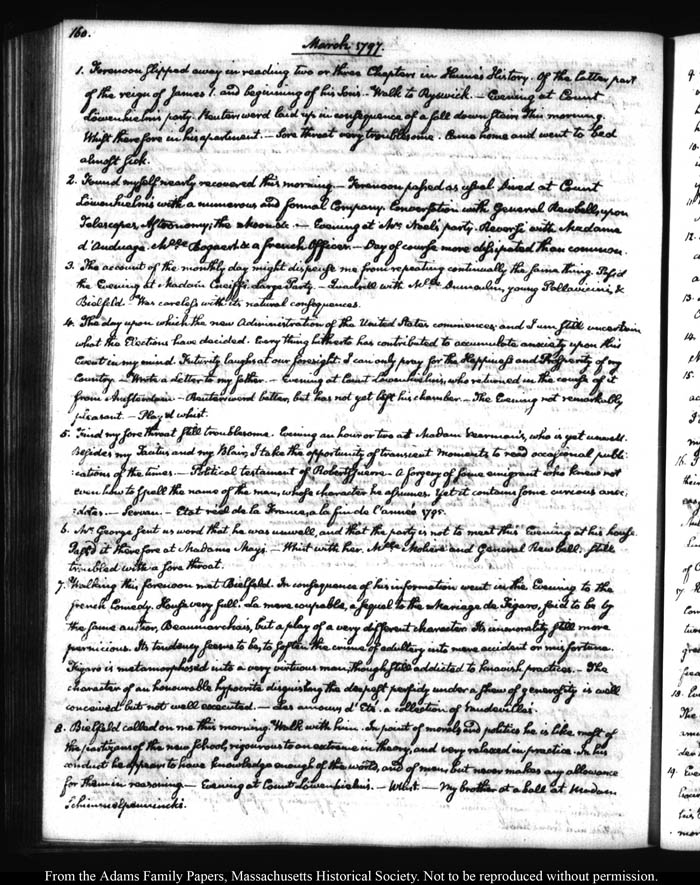 160.
March 1797.
1. Forenoon slipped away in reading two or three Chapters in Hume's History. Of the latter part
of the reign of James I. and beginning of his Sons. Walk to Ryswick. — Evening at Count
Löwenhielm's party. Reuterswerd laid up in consequence of a fall down stairs this morning.
Whist therefore in his apartment. — Sore throat very troublesome. Came home and went to bed
almost sick.
2. Found myself nearly recovered this morning. — Forenoon passed as usual. Dined at Count
Löwenhielm's with a numerous and formal Company. Conversation with General Rewbell, upon
Telescopes, Astronomy, the moon &c. — Evening at Mrs. Noel's party. Reversi with Madame
d'Auduage. Mdle. Bogaert & a french Officer. — Day of course more dissipated than common.
3. The account of the monthly day might dispense me from repeating continually the same thing. Pass'd
the Evening at Madam large Party. — Quadrill with Mdle. Dumoulin, young Pallavicini, &
Bielfeld. Was careless with its natural consequences.
4. The day upon which the new Administration of the United States commences, and I am still uncertain
what the Elections have decided. Every thing hitherto has contributed to accumulate anxiety upon this
Event in my mind. Futurity laughs at our foresight. I can only pray for the Happiness and Prosperity of my
Country. — Wrote a letter to my father. — Evening at Count Löwenhielm's, who returned in the course of it
from Amsterdam. — Reuterswerd better, but has not yet left his chamber. — The Evening not remarkably
pleasant. — Play'd whist.
5. Find my sore throat still troublesome. Evening an hour or two at Madam Veerman's, who is yet unwell.
Besides my Tacitus and my Blair, I take the opportunity of transient moments to read occasional publi-
:cations of the times. — Political testament of Robertspierre. A forgery of some emigrant who knew not
even how to spell the name of the man, whose character he assumes. Yet it contains some curious anec-
:dotes. — Servan. — Etat réel de la France, a la fin de l'année 1795.
6. Mr. George sent us word that he was unwell, and that the party is not to meet this Evening at his house.
Pass'd it therefore at Madame Mays. — Whist with her. Mdle. Moliere and General Rewbell. Still
troubled with a sore throat.
7. Walking this forenoon met Bielfeld. In consequence of his information went in the Evening to the
french Comedy. House very full. La mere coupable, a sequel to the Mariage de Figaro, said to be by
the same author, Beaumarchais, but a play of a very different character. Its immorality still more
pernicious. Its tendency seems to be, to soften the crime of adultery into mere accident or misfortune.
Figaro is metamorphosed into a very virtuous man, though still addicted to knavish practices. — The
character of an honourable hypocrite disguising the deepest perfidy under a shew of generosity is well
conceived but not well executed. — Les amours d'Eté. a collection of Vaudevilles.
8. Bielfeld called on me this morning. Walk with him. In point of morals and politics he is like most of
the partizans of the new School, rigourous to an extreme in theory, and very relaxed in practice. In his
conduct he appears to have knowledge enough of the world, and of men, but never makes any allowance
for them in reasoning. — Evening at Count Löwenhielm's. — Whist. — My brother at a ball at Madam
Schimmelpenninck's.
From the Adams Family Papers, Massachusetts Historical Society. Not to be reproduced without permission.